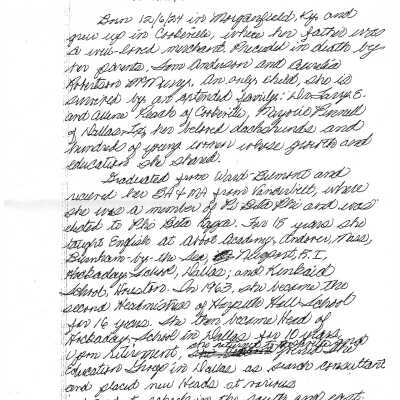 Born 12/6/24 in Morganfield, Ky. and
grew up in Cookeville, where her father was
a well-loved merchant. Preceded in death by
her parents, Tom Anderson and Aurelia
Robertson McMurry. An only child, she is
survived by an extended family: Dr. Larry E.
and Allene Reach of Cookeville, Marjorie Pannell
of Dallas, her beloved dachshunds and
hundreds of young women whose growth and
education she shared.
Graduated from Ward Belmont and
received her BA & MA from Vanderbilt, where
she was a member of Pi Beta Phi and was
elected to Phi Beta Kappa. For 15 years she
taught English at Abbot Academy, Andover, Mass,
Burnham-by-the Sea, Newport, R.I,
Hockaday School, Dallas; and Kinkaid
School, Houston. In 1963, she became the
second Headmistress of Harpeth Hall School
for 16 years. She then became Head of
Hockaday School in Dallas for 10 years.
Upon retirement, she returned to and
Education Group in Dallas as search consultant
and placed new Heads at various
schools in the south and east